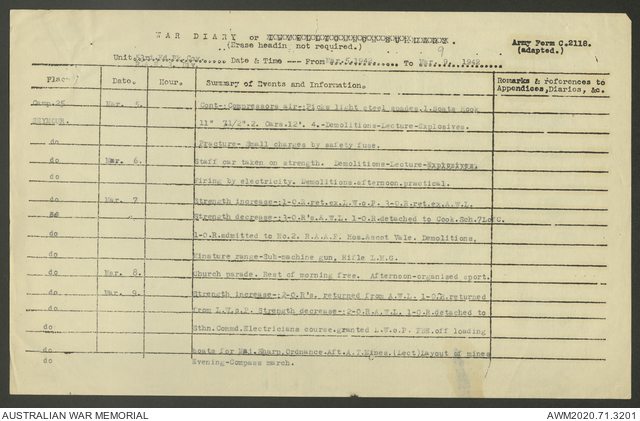 WAR DIARY or
(Erase headin not required.)
Army Form C.2118.
(adapted.)
9
Unit Date & Time --- From Mar. 5. 1942 To Mar. 9. 1942
Place Date. Hour. Summary of Events and Information. Remarks & references to Appendices, Diaries, &c.
Camp.25 Mar. 5. Cont-:Compressors air-:Picks light steel spades.1.Boats Hook
SEYMOUR. 11" 7½/2".2. Oars.12'. 4.-Demolitions-Lecture-Explosives.
do Practure- Small charges by safety fuse.
do Mar. 6. Staff car taken on strength. Demolitions-Lecture-Explosives.
do Firing by electricity. Demolitions.afternoon.practical.
do Mar. 7 Strength increase-:1-O.R.ret.ex.L.W.o.P. 3-O.R.ret.ex.A.W.L.
do Strength decrease-:3-O.R's.A.W.L. 1-O.R.detached to Cook.Sch.7LofC.
do 1-O.R.admitted to No.2. R.A.A.F. Hos.Ascot Vale. Demolitions,
do Minature range-Sub-machine gun, Rifle L.M.G.
do Mar. 8. Church parade. Rest of morning free. Afternoon-organised sport.
do Mar. 9. Strength increase-:2-O.R's. returned from A.W.L. 1-O.R.returned
do from L.W.o.P. Strength decrease-:2-O.R.A.W.L. 1-O.R.detached to
do Sthn.Commd.Electricians course.granted L.W.o.P. off loading
do boats for Maj. Ordnance.Aft.A.T.Mines.(Lect)Layout of mines
do Evening-Compass march.
AUSTRALIAN WAR MEMORIAL
AWM2020.71.3201